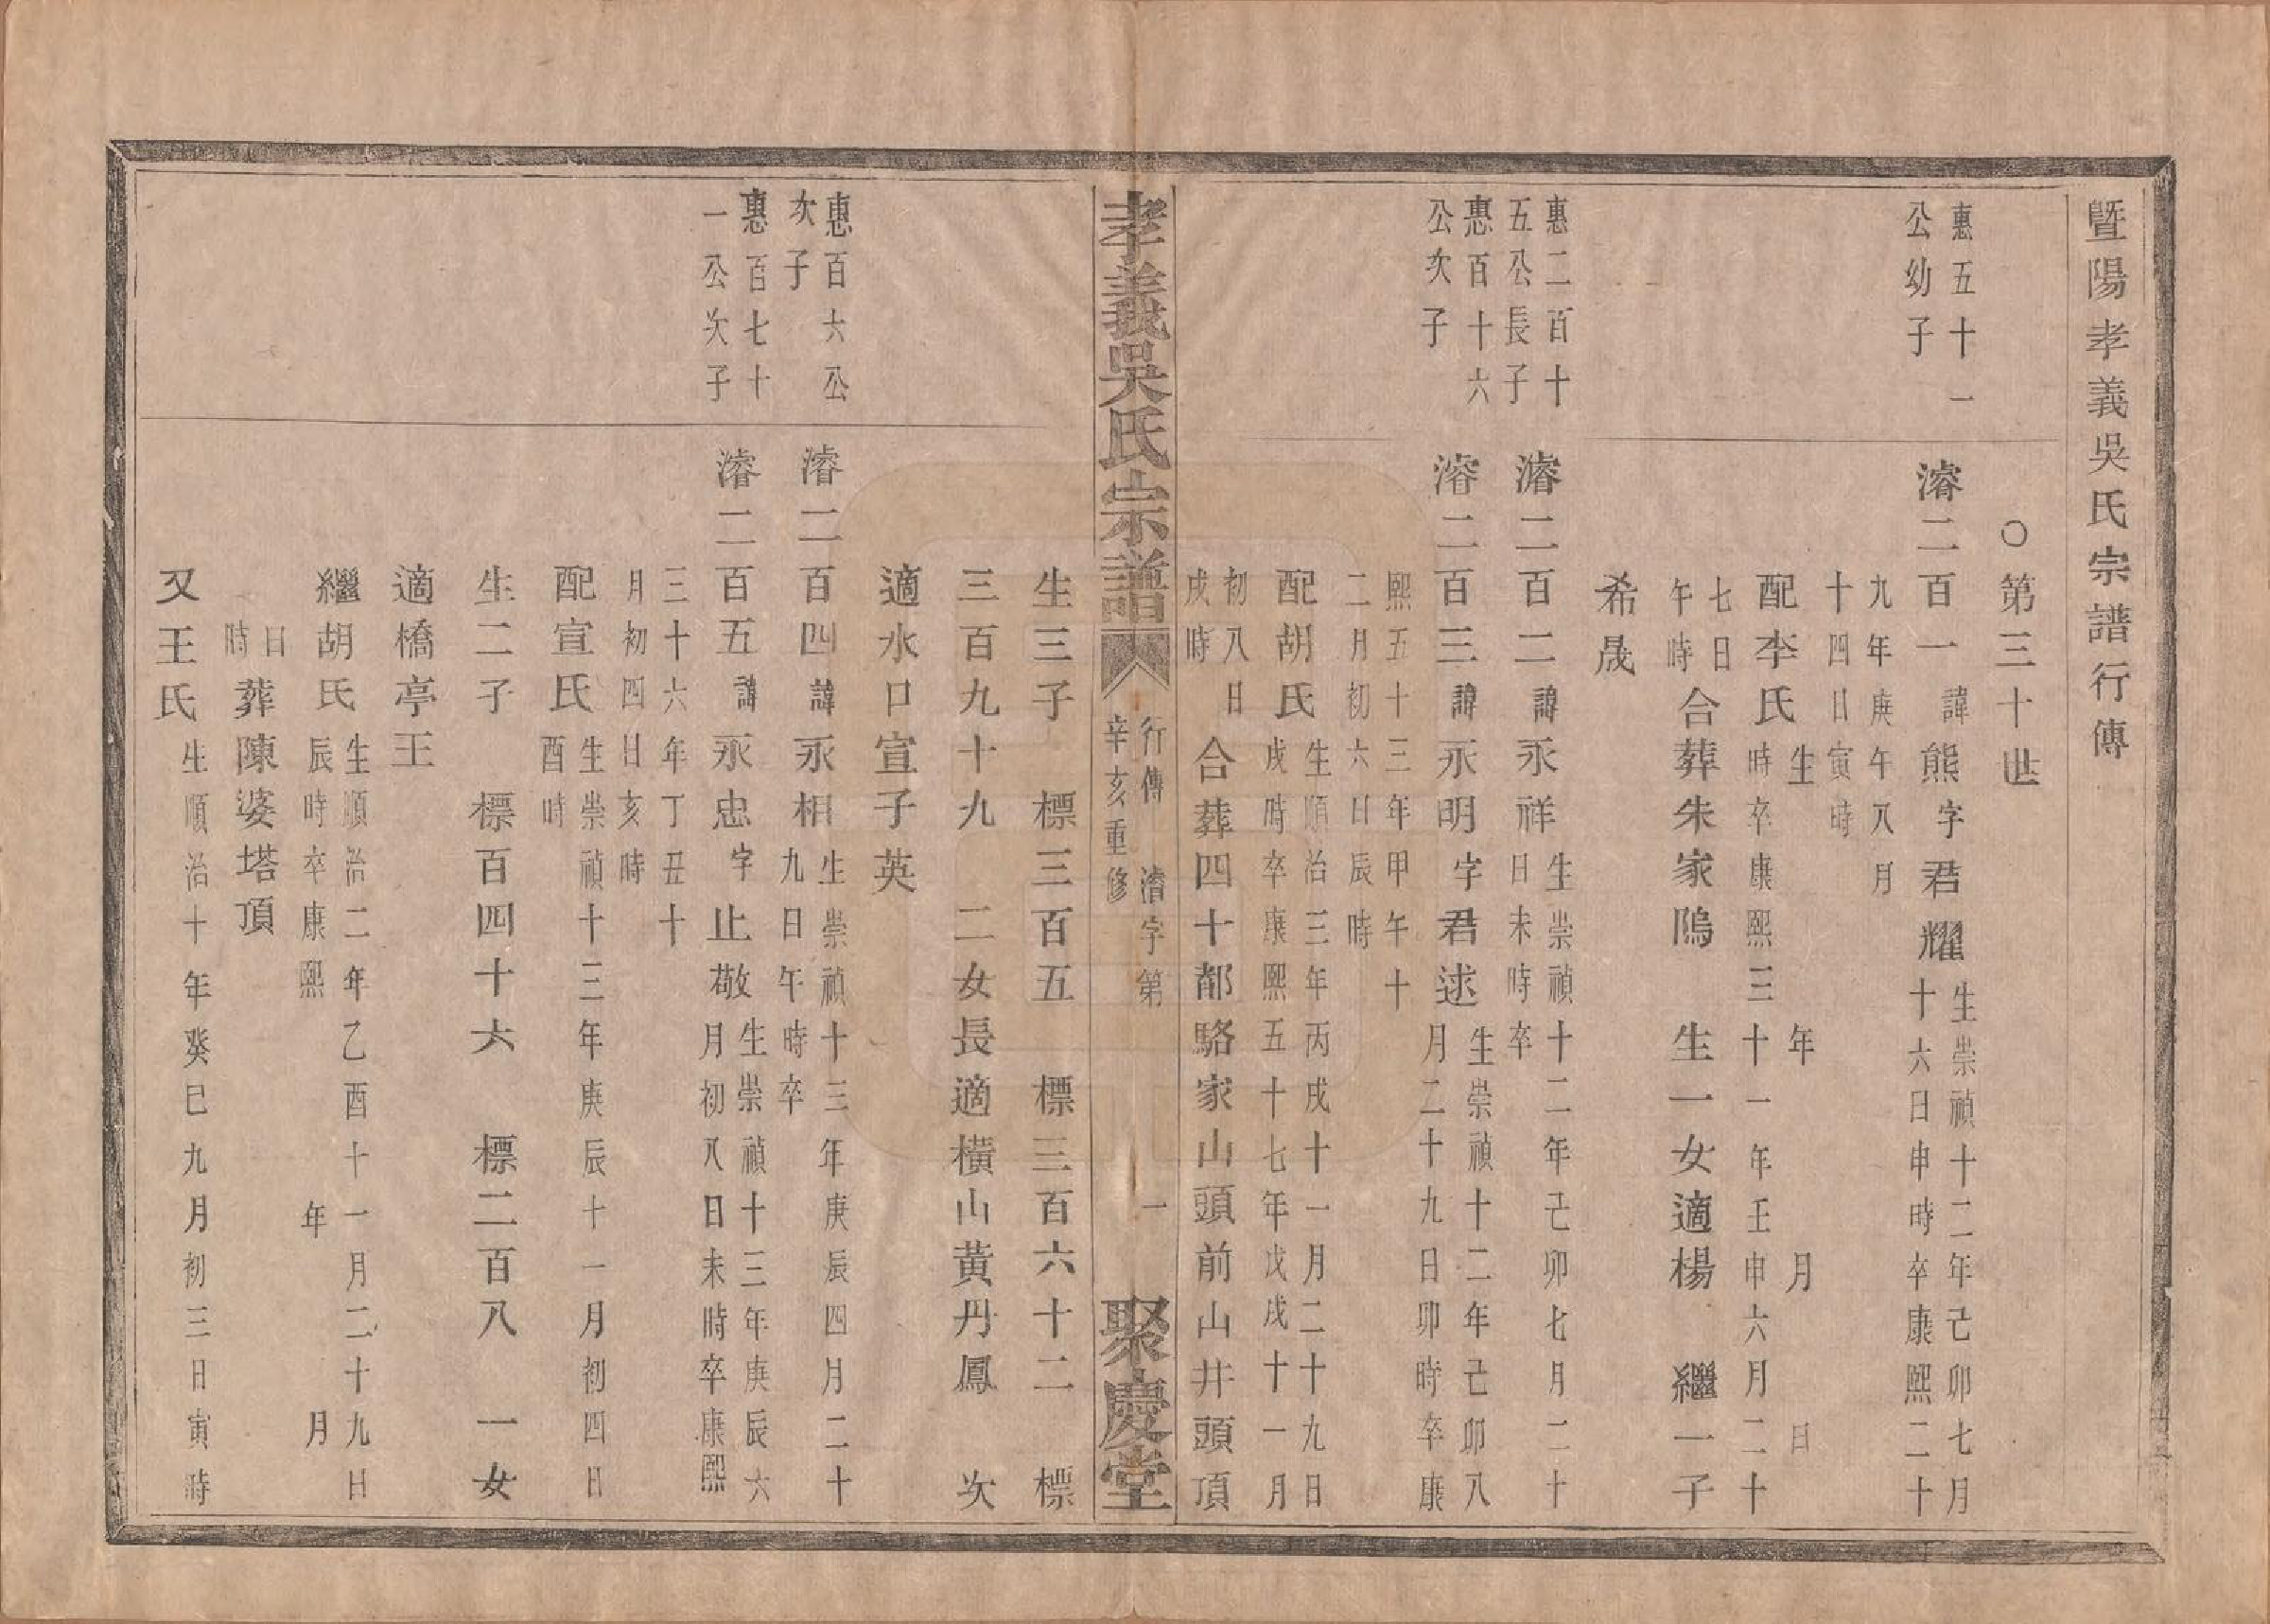 暨陽孝義吳氏宗譜行傳
〇第三十世
惠五十一
公幼子
濬二百一 諱熊 字君耀
生崇禎十二年己卯七月
十六日申時卒康熙二十
九年庚午八月
十四日寅時
配李氏
生 年 月 日
時卒康熙三十一年壬申六月二十
七日
午時
合葬朱家隖 生一女適楊 繼一子
希晟
惠二百十
五公長子
濬二百二 諱永祥
生崇禎十二年己卯七月二十
日未時卒
惠百十六
公次子
濬二百三 諱永明 字君逑
生崇禎十二年己卯八
月二十九日卯時卒康
熙五十三年甲午十
二月初六日辰時
配胡氏
生順治三年丙戌十一月二十九日
戌時卒康熙五十七年戊戌十一月
初八日
戌時
合葬四十都駱家山頭前山井頭頂
孝義吳氏宗譜
行傳 濬字第 一
辛亥重修
聚慶堂
生三子 標三百五 標三百六十二 標
三百九十九 二女長適橫山黃丹鳳 次
適水口宣子英
惠百六公
次子
濬二百四 諱永相
生崇禎十三年庚辰四月二十
九日午時卒
惠百七十
一公次子
濬二百五 諱永忠 字止敬
生崇禎十三年庚辰六
月初八日未時卒康熙
三十六年丁丑十
月初四日亥時
配宣氏
生崇禎十三年庚辰十一月初四日
酉時
生二子 標百四十六 標二百八 一女
適橋亭王
繼胡氏
生順治二年乙酉十一月二十九日
辰時卒康熙 年 月
日
時
葬陳婆塔頂
又王氏
生順治十年癸巳九月初三日寅時